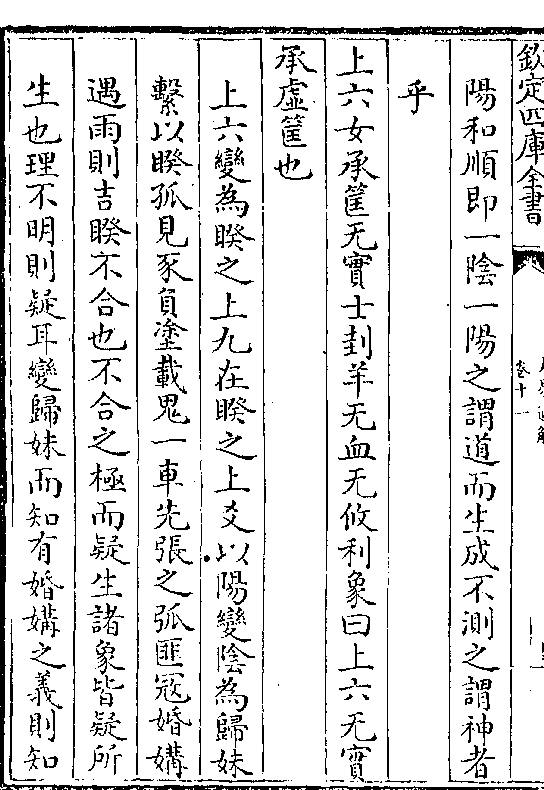 欽定四庫全書
卷十一
陽和順即一陰一陽之謂道而生成不測之謂神者
乎
上六女承筐无實士刲羊无血无攸利象曰上六无實
承虛筐也
上六變為睽之上九在睽之上爻以陽變陰為歸妹
繫以睽孤見豕負塗載鬼一車先張之弧匪宼婚媾
遇雨則吉睽不合也不合之極而疑生諸象皆疑所
生也理不明則疑耳變歸妹而知有婚媾之義則知